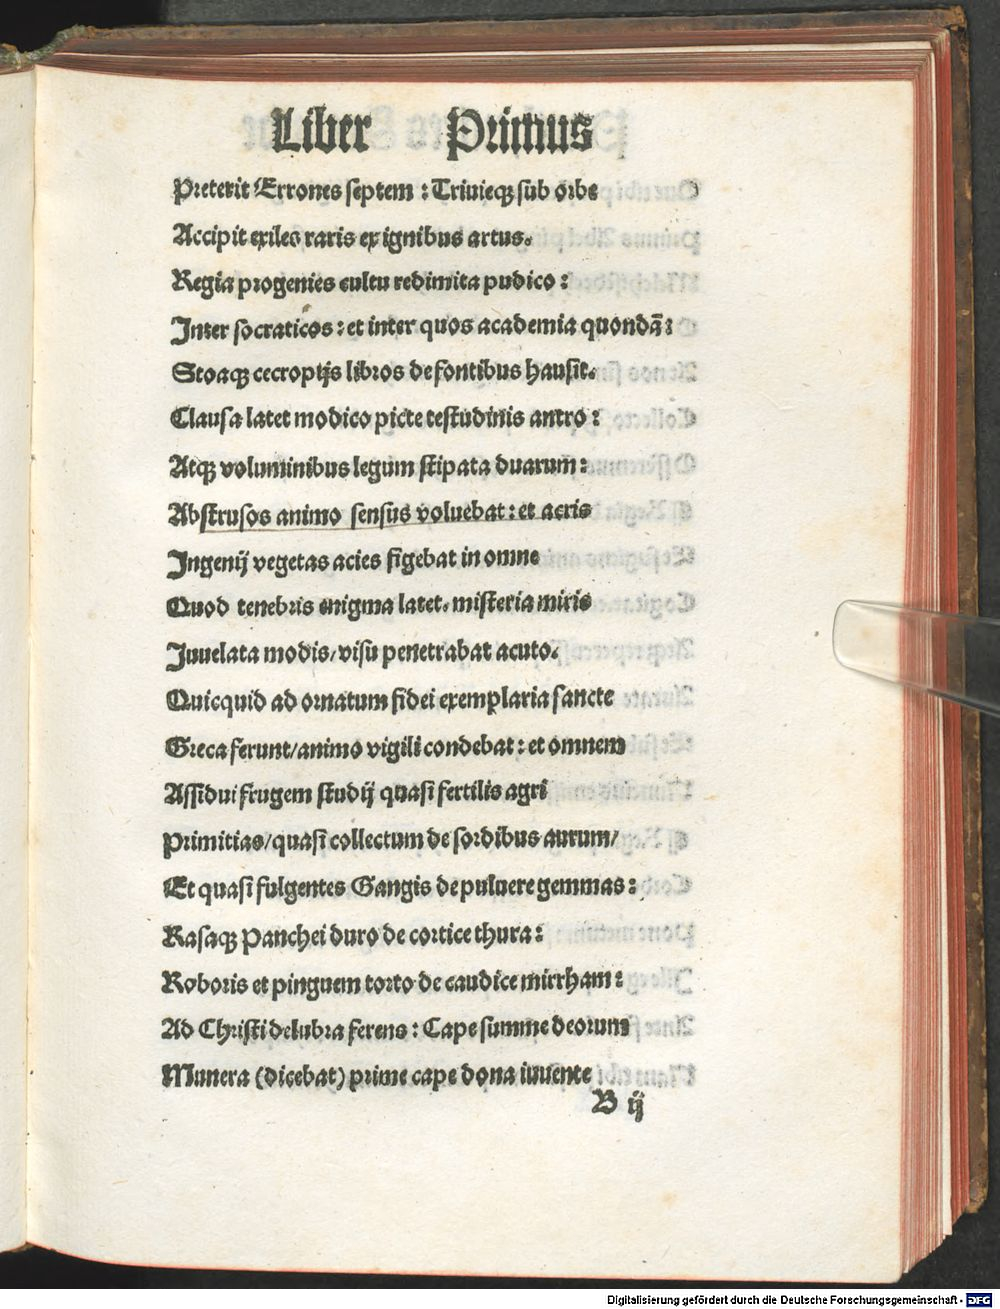 Liber Primus
Preterit Errones septem : Triuieqꝫ sub orbe
Accipit exiles raris ex ignibus artus.
Regia progenies cultu redimita pudico :
Inter socraticos : et inter quos academia quondã :
Stoaqꝫ cecropijs libros de fontibus hausit.
Clausa latet modico picte testudinis antro :
Atqꝫ voluminibus legum stipata duarum :
Abstrusos animo sensus voluebat : et acris
Ingenij vegetas acies figebat in omne
Quod tenebris enigma latet. misteria miris
Inuelata modis/ visu penetrabat acuto.
Quicquid ad ornatum fidei exemplaria sancte
Greca ferunt/ animo vigili condebat : et omnem
Assidui frugem studij quasi fertilis agri
Primitias/ quasi collectum de sordibus aurum/
Et quasi fulgentes Gangis de puluere gemmas :
Rasaqꝫ Panchei duro de cortice thura :
Roboris et pinguem torto de caudice mirrham :
Ad Christi delubra ferens : Cape summe deorum
Munera (dicebat) prime cape dona iuuente
B ij
Digitalisierung gefördert durch die Deutsche Forschungsgemeinschaft - DFG